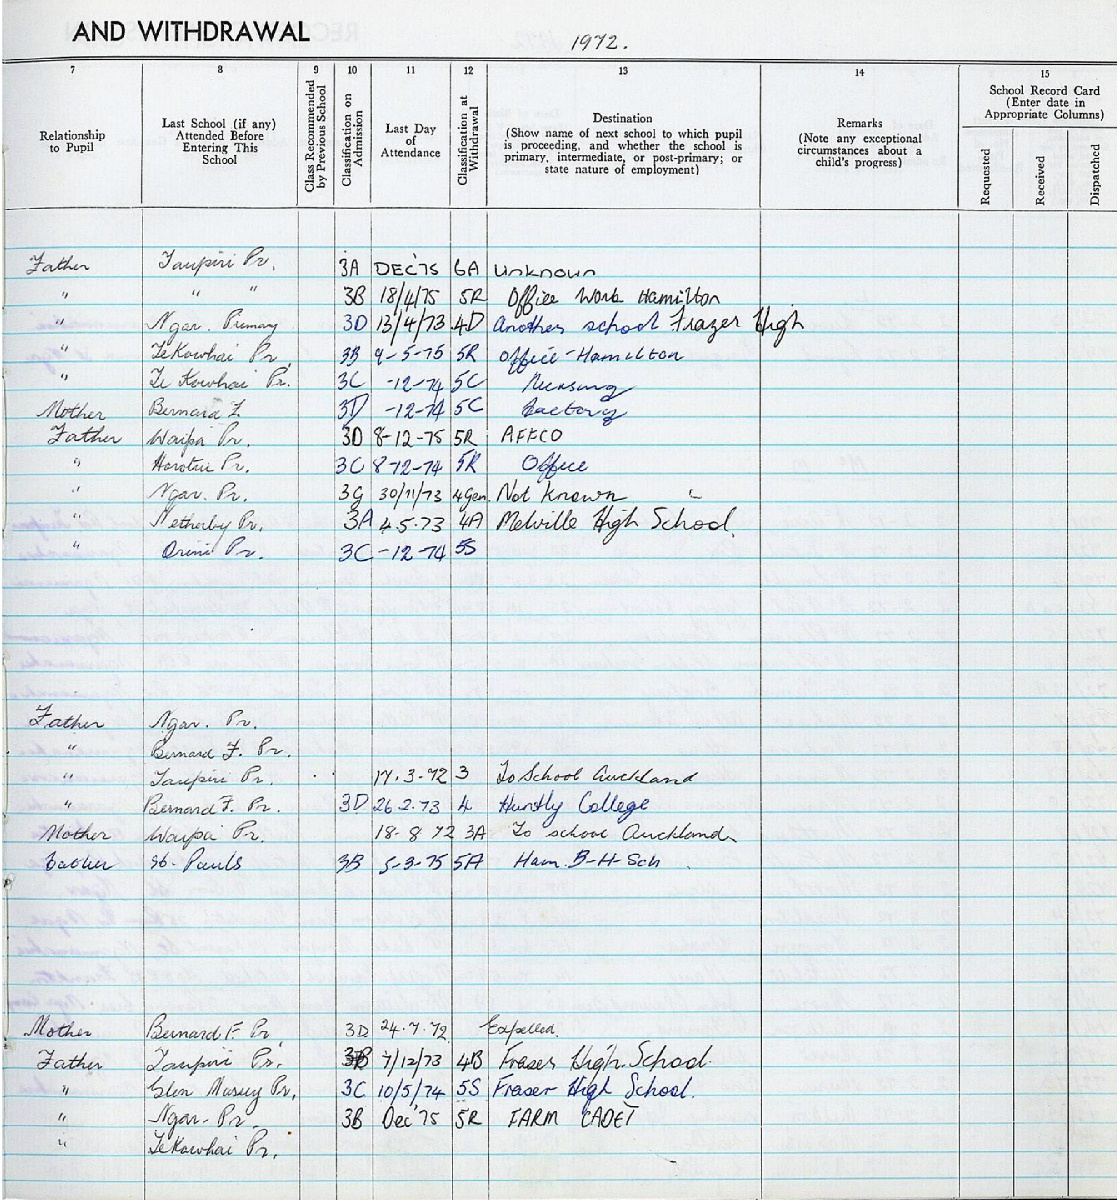 AND WITHDRAWAL
1972.
7 8 9 10 11 12 13 14 15
Relationship to Pupil
Last School (if any) Attended Before Entering This School
Class Recommended by Previous School
Classification on Admission
Last Day of Attendance
Classification at Withdrawal
Destination (Show name of next school to which pupil is proceeding, and whether the school is primary, intermediate, or post-primary; or state nature of employment)
Remarks (Note any exceptional circumstances about a child's progress)
School Record Card (Enter date in Appropriate Columns)
Requested Received Dispatched
Father Taupiri Pr. 3A DEC'75 6A Unknown
" " " 3B 18/4/75 5R Office Work Hamilton
" Ngar. Primary 3D 13/4/73 4D Another school Frazer High
" TeKowhai Pr. 3B 9-5-75 5R Office-Hamilton
" Te Kowhai Pr. 3C -12-74 5C Nursing
Mother Bernard F. 3D -12-74 5C Factory
Father Waipa Pr. 3D 8-12-75 5R AFFCO
" Horotiu Pr. 3C 8-12-74 5R Office
" Ngar. Pr. 3G 30/11/73 4Gen. Not known
" Netherby Pr. 3A 4.5.73 4A Melville High School.
" Orini Pr. 3C -12-74 5S
Father Ngar. Pr.
" Bernard F. Pr.
" Taupiri Pr. 17.3.72 3 To School Auckland
" Bernard F. Pr. 3D 26.2.73 4 Huntly College
Mother Waipa Pr. 18-8-72 3A To school Auckland
Father St. Pauls 3B 5-3-75 5A Ham. B-H-Sch
Mother Bernard F. Pr 3D 24.7.72 Expelled.
Father Taupiri Pr. 3B 7/12/73 4B Fraser High School.
" Glen Massey Pr. 3C 10/5/74 5S Fraser High School.
" Ngar. Pr. 3B Dec'75 5R FARM CADET
" TeKowhai Pr.